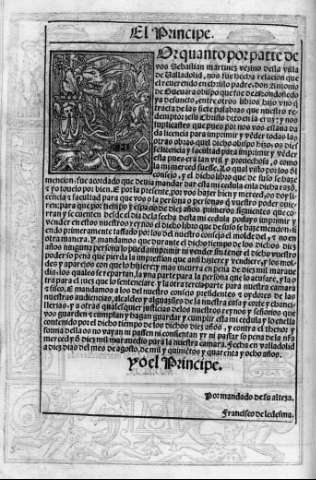 El Principe.
Or quanto por parte de
vos Sebastian martinez vezino dela villa
de Valladolid, nos fue hecha relacion que
el reuerendo en christo padre don Antonio
de Gueuara obispo que fue de
ya defuncto, entre otros libros hizo vno q̃
tracta de las siete palabras que nuestro re
demptor iesu Christo dixo en la cruz: y nos
suplicastes que pues por nos vos estaua da
da licencia para imprimir y vẽder todas las
otras obras quel dicho obispo hizo, os diesse
licencia y facultad para imprimir y vẽder
esta pues era tan vtil y prouechosa, o como
la mi merced fuesse. Lo qual visto por los del
consejo y el dicho libro que de suso se haze
mencion: fue acordado que deuia mandar dar esta mi cedula en la dicha razõ,
e yo touelo por bien. E por la presente, por vos hazer bien y merced, os doy li-
cencia y facultad para que vos o la persona o personas q̃ vuestro poder ouie-
ren: para que por tiempo y espacio de diez años primeros siguientes que co-
rran y se cuenten desde el dia dela fecha desta mi cedula podays imprimir y
vender en estos nuestros reynos el dicho libro que de suso se haze mencion: si-
endo primeramente tassado por los del nuestro consejo el molde del, y no en
otra manera. Y mandamos que durante el dicho tiempo de los dichos diez
años ninguna persona lo pueda imprimir ni vender sin tener el dicho vuestro
poder so pena que pierda la impression que assi hiziere y vendiere, y los mol-
des y aparejos con que lo hiziere y mas incurra en pena de diez mil maraue
dis: los quales se repartan, la vna parte para la persona que lo acusare, y la o-
tra para el juez que lo sentenciare y la otra tercia parte para nuestra camara
y fisco, e mandamos a los del nuestro consejo presidentes y oydores de las
nuestras audiencias, alcaldes y alguaziles de la nuestra casa y corte y chanci-
llerias: y a otras qualesquier justicias de los nuestros reynos y señorios que
vos guarden y cumplan y hagan guardar y cumplir esta mi cedula y lo en ella
contenido por el dicho tiempo de los dichos diez años, y contra el thenor y
forma della os no vayan ni passen ni consientan yr ni passar so pena de la mi
merced y d̃ diez mil marauedis para la nuestra camara. Fecha en valladolid
a diez dias del mes de agosto, de mil y quinientos y quarenta y ocho años.
yo el Principe.
Por mandado de su alteza.
Francisco de ledesma.